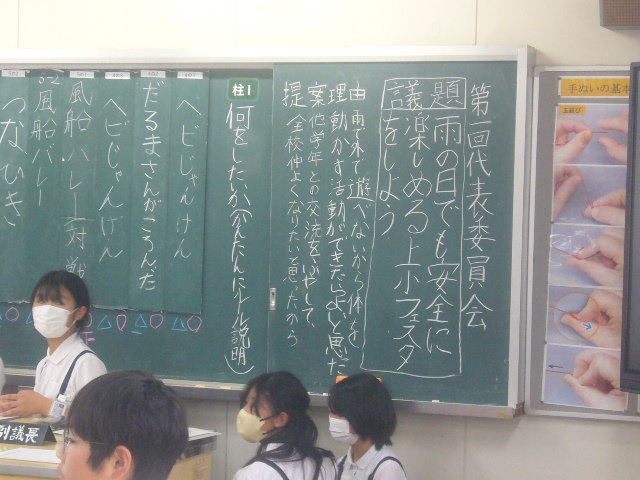 第一回代表委員会
議題
雨の日でも安全に
楽しめる上小フェスタ
をしよう
提案理由
雨で外で遊べないから体を
動かす活動ができたらよいと思った
他学年との交流をふやして、
全校仲よくなりたいと思ったから
柱1
何をしたいか(かんたんにルール説明)
ヘビじゃんけん
だるまさんがころんだ
ヘビじゃんけん
風船バレー対戦
風船バレー
つなひき
副議長
手ぬいの基本
玉結び